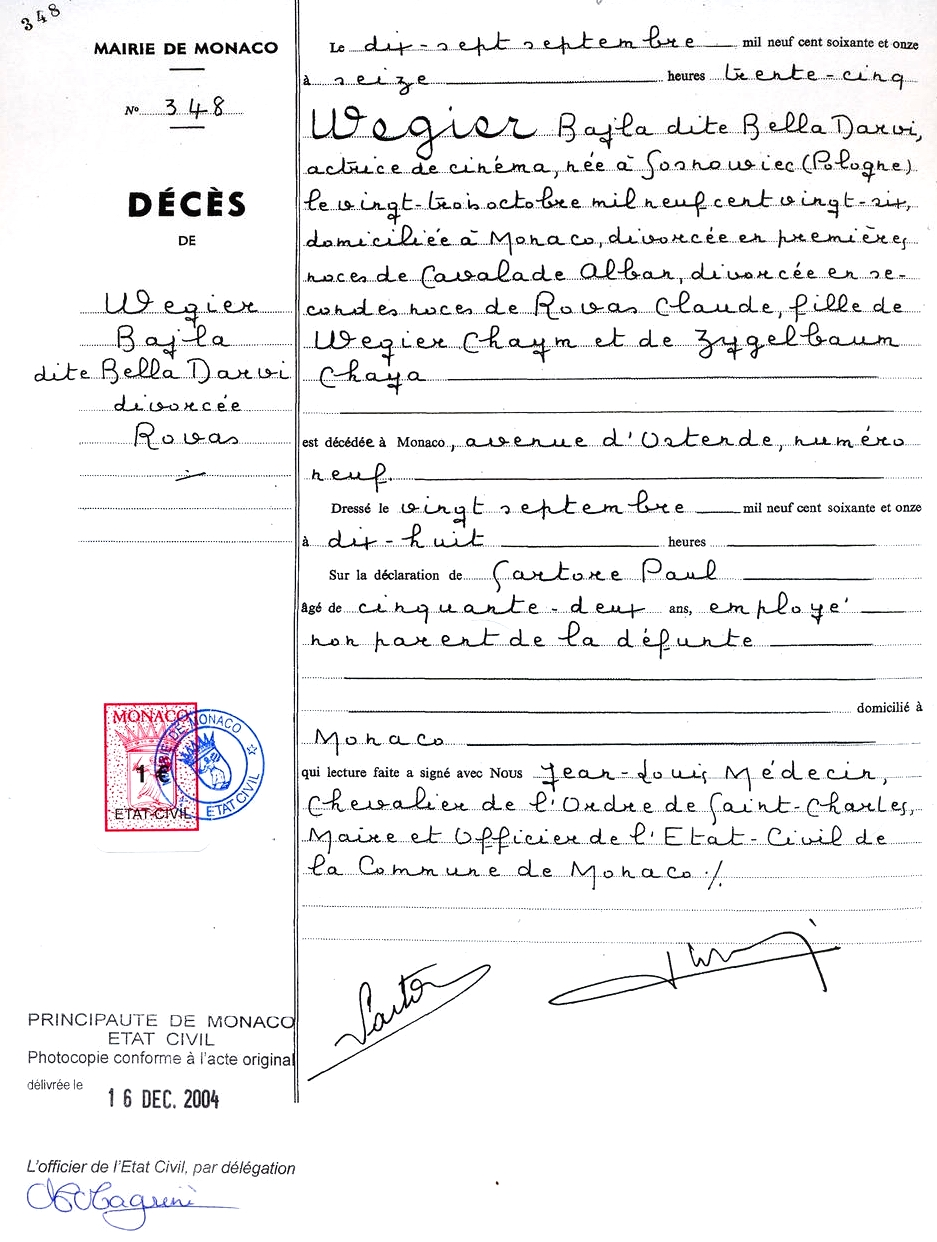 348
MAIRIE DE MONACO
No 348
DÉCÈS
DE
Wegier
Bajla
dite Bella Darvi
divorcée
Rovas
Le dix-sept septembre mil neuf cent soixante et onze
à seize heures trente-cinq
Wegier Bajla dite Bella Darvi,
actrice de cinéma, née à Sosnowiec (Pologne)
le vingt-trois octobre mil neuf cent vingt-six,
domiciliée à Monaco, divorcée en premières
noces de Cavalade Alban, divorcée en se-
condes noces de Rovas Claude, fille de
Wegier Chaym et de Zygelbaum
Chaya
est décédée à Monaco, avenue d'Ostende, numéro
neuf.
Dressé le vingt septembre mil neuf cent soixante et onze
à dix-huit heures
Sur la déclaration de Sartore Paul
âgé de cinquante-deux ans, employé
non parent de la défunte
domicilié à
Monaco
qui lecture faite a signé avec Nous Jean-Louis Médecin,
Chevalier de l'Ordre de Saint-Charles,
Maire et Officier de l'Etat-Civil de
la Commune de Monaco ./.
MONACO
1 €
ETAT-CIVIL
MAIRIE DE MONACO
ETAT CIVIL
PRINCIPAUTE DE MONACO
ETAT CIVIL
Photocopie conforme à l'acte original
délivrée le
16 DEC. 2004
L'officier de l'Etat Civil, par délégation